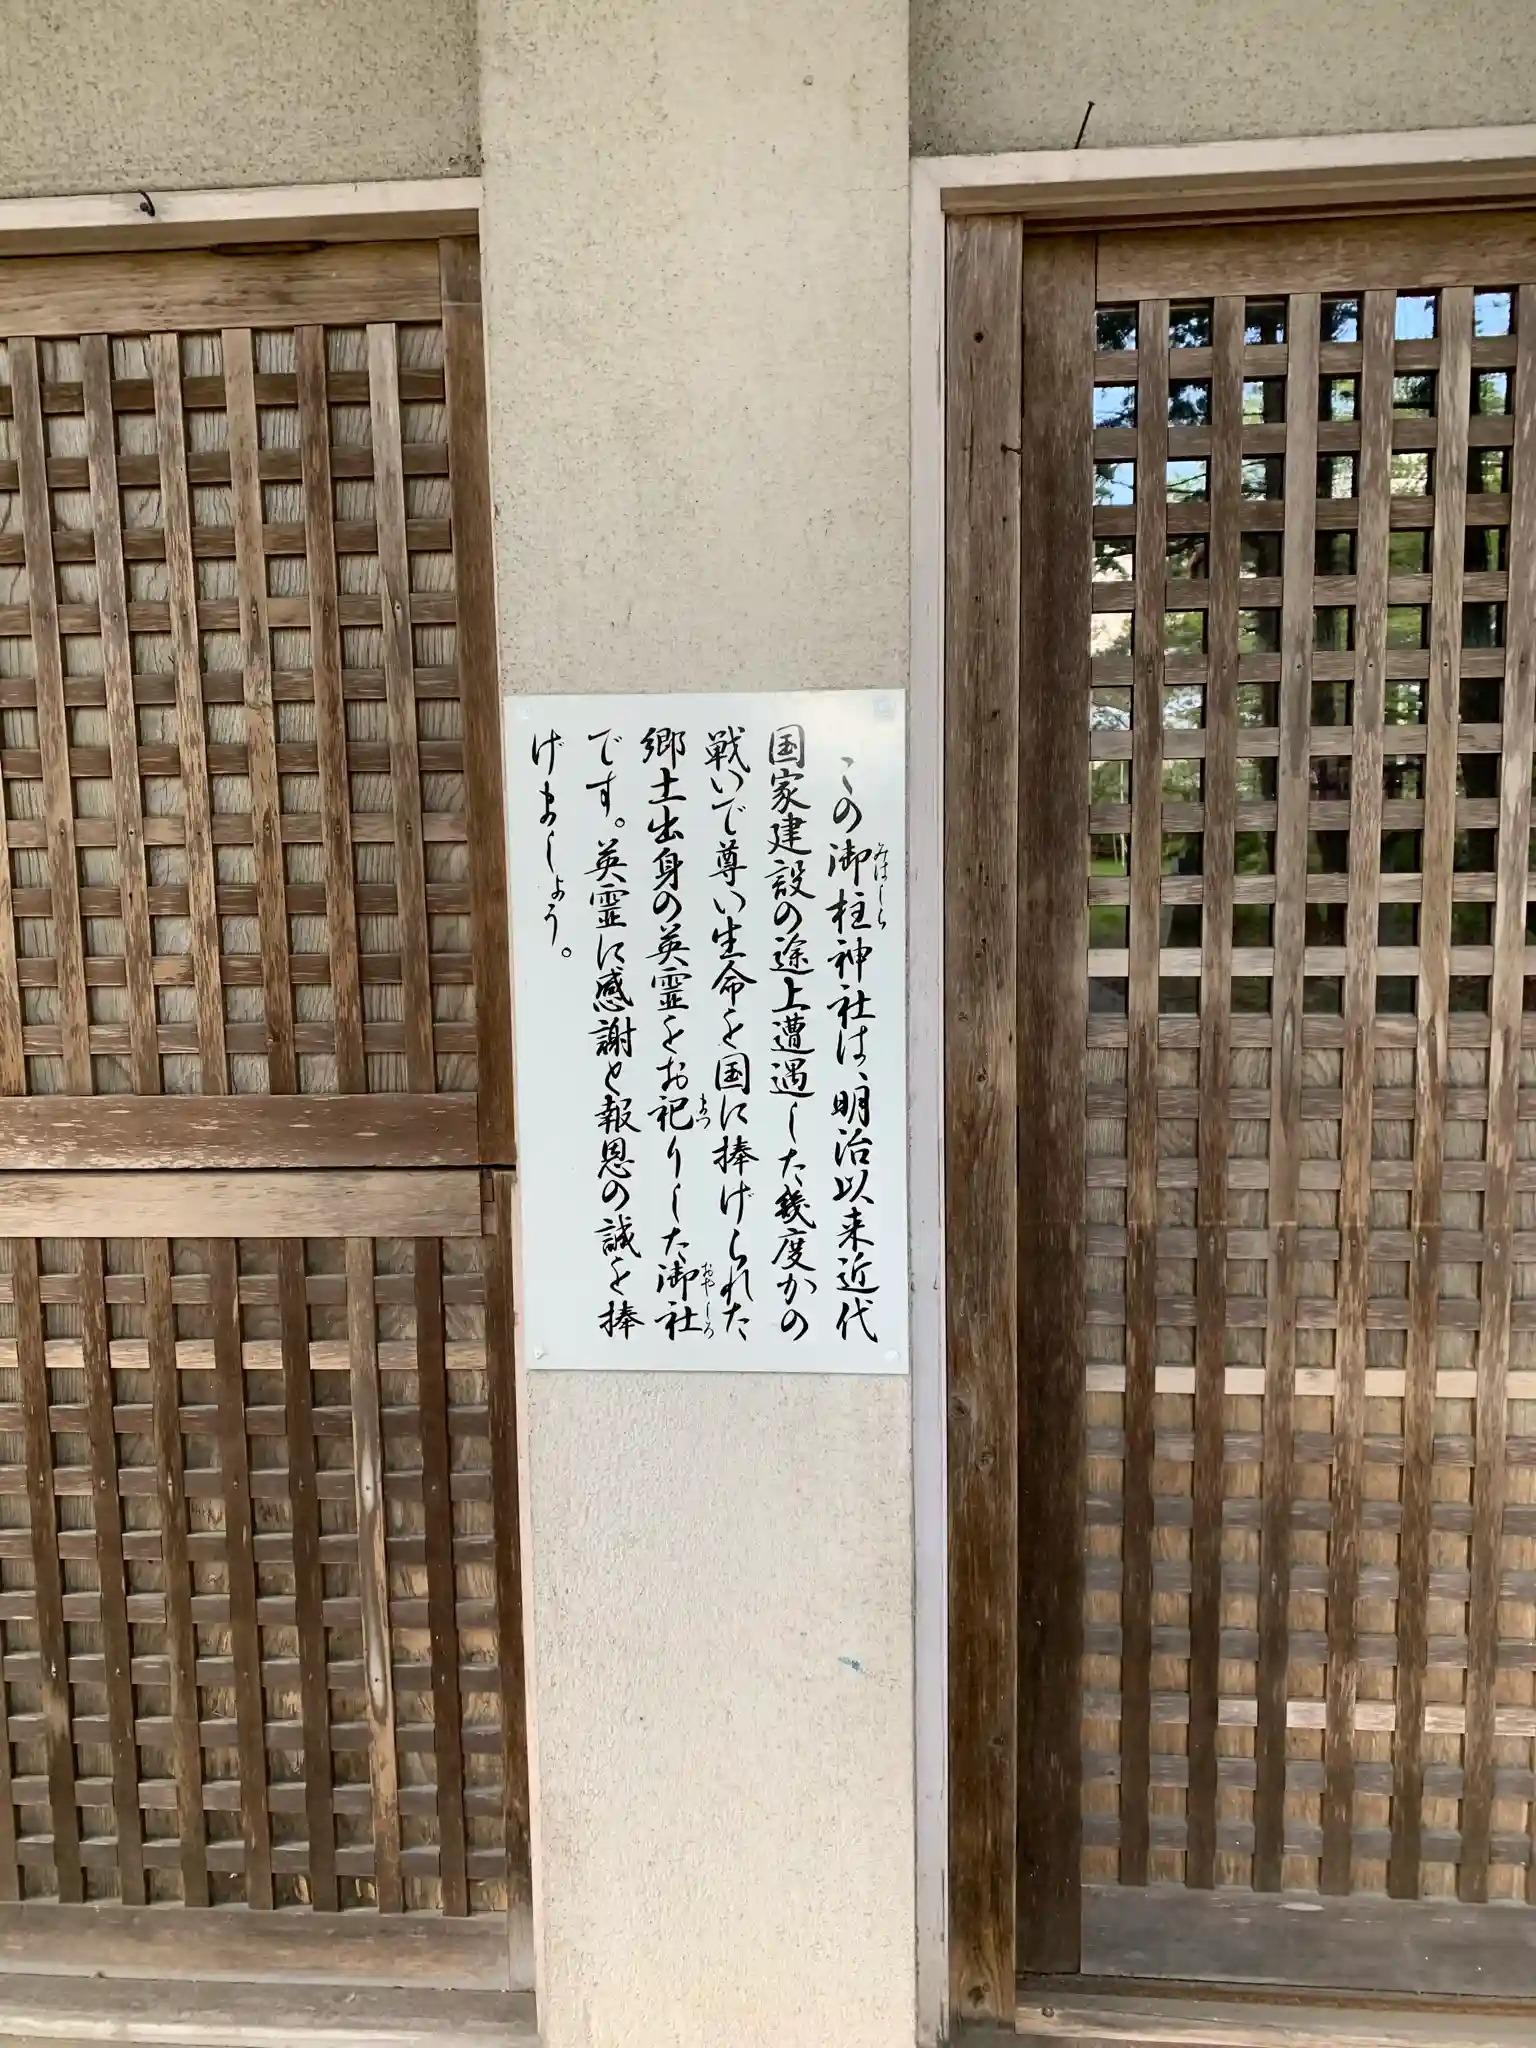 この御柱神社は、明治以来近代
国家建設の途上遭遇した幾度かの
戦いで尊い生命を国に捧げられた
郷土出身の英霊をお祀りした御社
です。英霊に感謝と報恩の誠を捧
げましょう。
みはしら
まつ
おやしろ